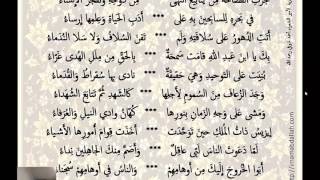 في بَحرِهِ لِلسابِحينَ بِهِ عَلى *** أَدَبِ الحَياةِ وَعِلمِها إِرساءُ
أَتَتِ الدُهورُ عَلى سُلافَتِهِ وَلَم *** تَفنَ السُلافُ وَلا سَلا النُدَماءُ
بِكَ يا اِبنَ عَبدِ اللَهِ قامَت سَمحَةٌ *** بِالحَقِّ مِن مِلَلِ الهُدى غَرّاءُ
بُنِيَت عَلى التَوحيدِ وَهيَ حَقيقَةٌ *** نادى بِها سُقراطُ وَالقُدَماءُ
وَجَدَ الزُعافَ مِنَ السُمومِ لِأَجلِها *** كَالشَهدِ ثُمَّ تَتابَعَ الشُهَداءُ
وَمَشى عَلى وَجهِ الزَمانِ بِنورِها *** كُهّانُ وادي النيلِ وَالعُرَفاءُ
إيزيسُ ذاتُ المُلكِ حينَ تَوَحَّدَت *** أَخَذَت قِوامَ أُمورِها الأَشياءُ
لَمّا دَعَوتَ الناسَ لَبّى عاقِلٌ *** وَأَصَمَّ مِنكَ الجاهِلينَ نِداءُ
أَبَوا الخُروجَ إِلَيكَ مِن أَوهامِهِم *** وَالناسُ في أَوهامِهِم سُجَناءُ